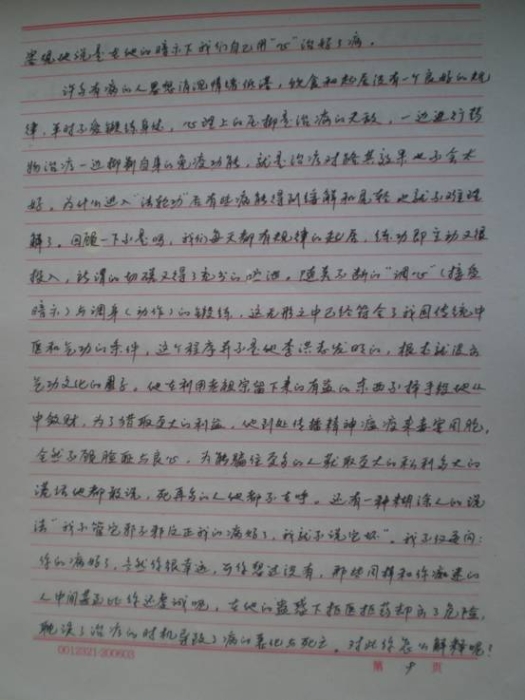 客观地说是在他的暗示下我们自己用“心”治好了病。
许多有病的人思想消沉情绪低落，饮食和起居没有一个良好的规
律，平时不爱锻炼身体，心理上的压抑是治病的天敌，一边进行药
物治疗一边抑制自身的免疫功能，就是治疗对路其效果也不会太
好，为什么进入“法轮功”后有些病能得到缓解和见轻也就不难理
解了。回顾一下不是吗，我们每天都有规律的起居，练功即主动又很
投入，所谓的切磋又得了充分的，随着不断的“调心”（接受
暗示）与调身（动作）的锻练，这无形之中已经符合了我国传统中
医和气功的条件，这个程序并不是他李洪志发明的，根本就没离
气功文化的圈子。他在利用老祖宗留下来的有益的东西不择手段地从
中敛财，为了猎取更大的利益，他到处传播精神瘟疫来毒害同胞，
全然不顾脸面与良心，为欺骗住更多的人获取更大的私利多大的
谎话他都敢说，死再多的人他都不在乎。还有一种糊涂人的说
法“我不管它那不那反正我的病好了，我就不说它坏”。我不仅要问：
你的病好了，当然你很幸运，可你想过没有，那些同样和你痴迷的
人中间甚至比你还虔诚呢，在他的蛊惑下拒医拒药却丢了危险，
耽误了治疗的时机导致了病的恶化与死亡。对此你怎么解释呢！
0012321-200603
第 9 页